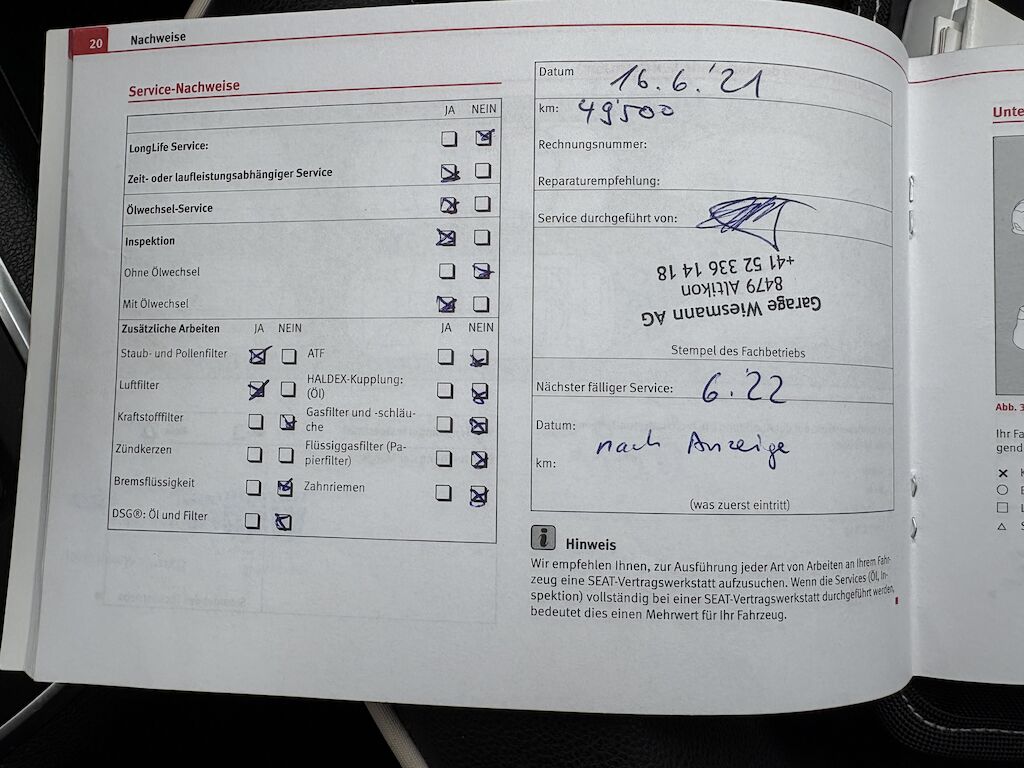 20 Nachweise
Service-Nachweise
JA NEIN
LongLife Service:
Zeit- oder laufleistungsabhängiger Service
Ölwechsel-Service
Inspektion
Ohne Ölwechsel
Mit Ölwechsel
Zusätzliche Arbeiten JA NEIN JA NEIN
Staub- und Pollenfilter ATF
Luftfilter HALDEX-Kupplung:
(Öl)
Kraftstofffilter Gasfilter und -schläu-
che
Zündkerzen Flüssiggasfilter (Pa-
pierfilter)
Bremsflüssigkeit Zahnriemen
DSG®: Öl und Filter
Datum 16.6.'21
km: 49'500
Rechnungsnummer:
Reparaturempfehlung:
Service durchgeführt von:
Garage Wiesmann AG
8479 Altikon
+41 52 336 14 18
Stempel des Fachbetriebs
Nächster fälliger Service: 6.'22
Datum:
nach Anzeige
km:
(was zuerst eintritt)
i Hinweis
Wir empfehlen Ihnen, zur Ausführung jeder Art von Arbeiten an Ihrem Fahr-
zeug eine SEAT-Vertragswerkstatt aufzusuchen. Wenn die Services (Öl, In-
spektion) vollständig bei einer SEAT-Vertragswerkstatt durchgeführt werden,
bedeutet dies einen Mehrwert für Ihr Fahrzeug.
Unte
Abb. 3
Ihr Fa
gend